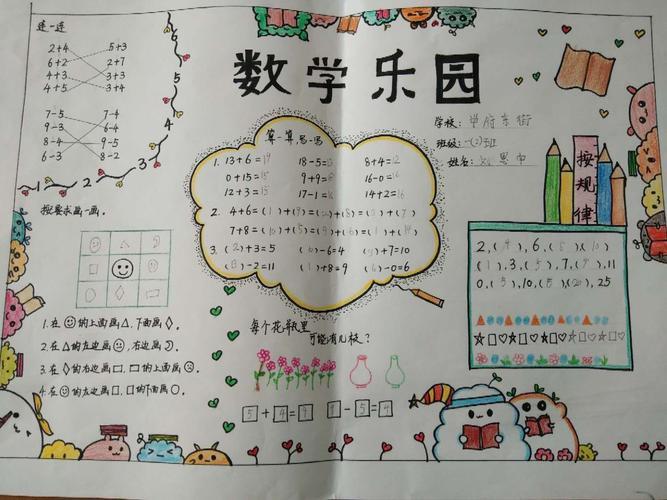 连一连
2+4 5+3
6+2 2+7
4+3 3+3
4+5 3+4
7-5 7-4
9-3 6-4
8-4 9-5
6-3 8-2
1 2 3 4 5 6
数学乐园
学校:
班级:一(2)班
姓名:
算一算,思一思
1. 13+6=19 18-5=13 8+4=12
0+15=15 9+9= 16-0=
12+3=15 17-1=16 14+2=16
2. 4+6=(1)+(9)=( )+(8)=(3)+(7)
7+8=(10)+(5)=(9)+(6)=(1)+( )
3. (2)+3=5 ( )-6=4 ( )+7=10
( )-2=11 (1)+8=9 ( )-0=6
按规律
2,(4),6,(8),(10)
(1),3,(5),7,(9),11
0,(5),10,( ),(20),25
按要求画一画。
1.在☺的上面画△,下面画◇。
2.在△的左边画☹,右边画 。
3.在◇的右边画□,□的上面画○。
4.在☺的左边画□,□的下面画○。
每个花瓶里
可能有几枝?
5+4=9 9-5=4